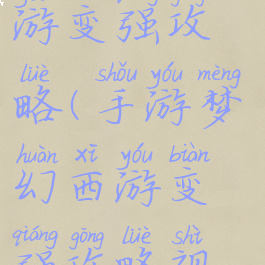 游变强攻
lüè shǒu yóu mèng
略(手游梦
huàn xī yóu biàn
幻西游变
qiáng gōng lüè shì
强攻略视